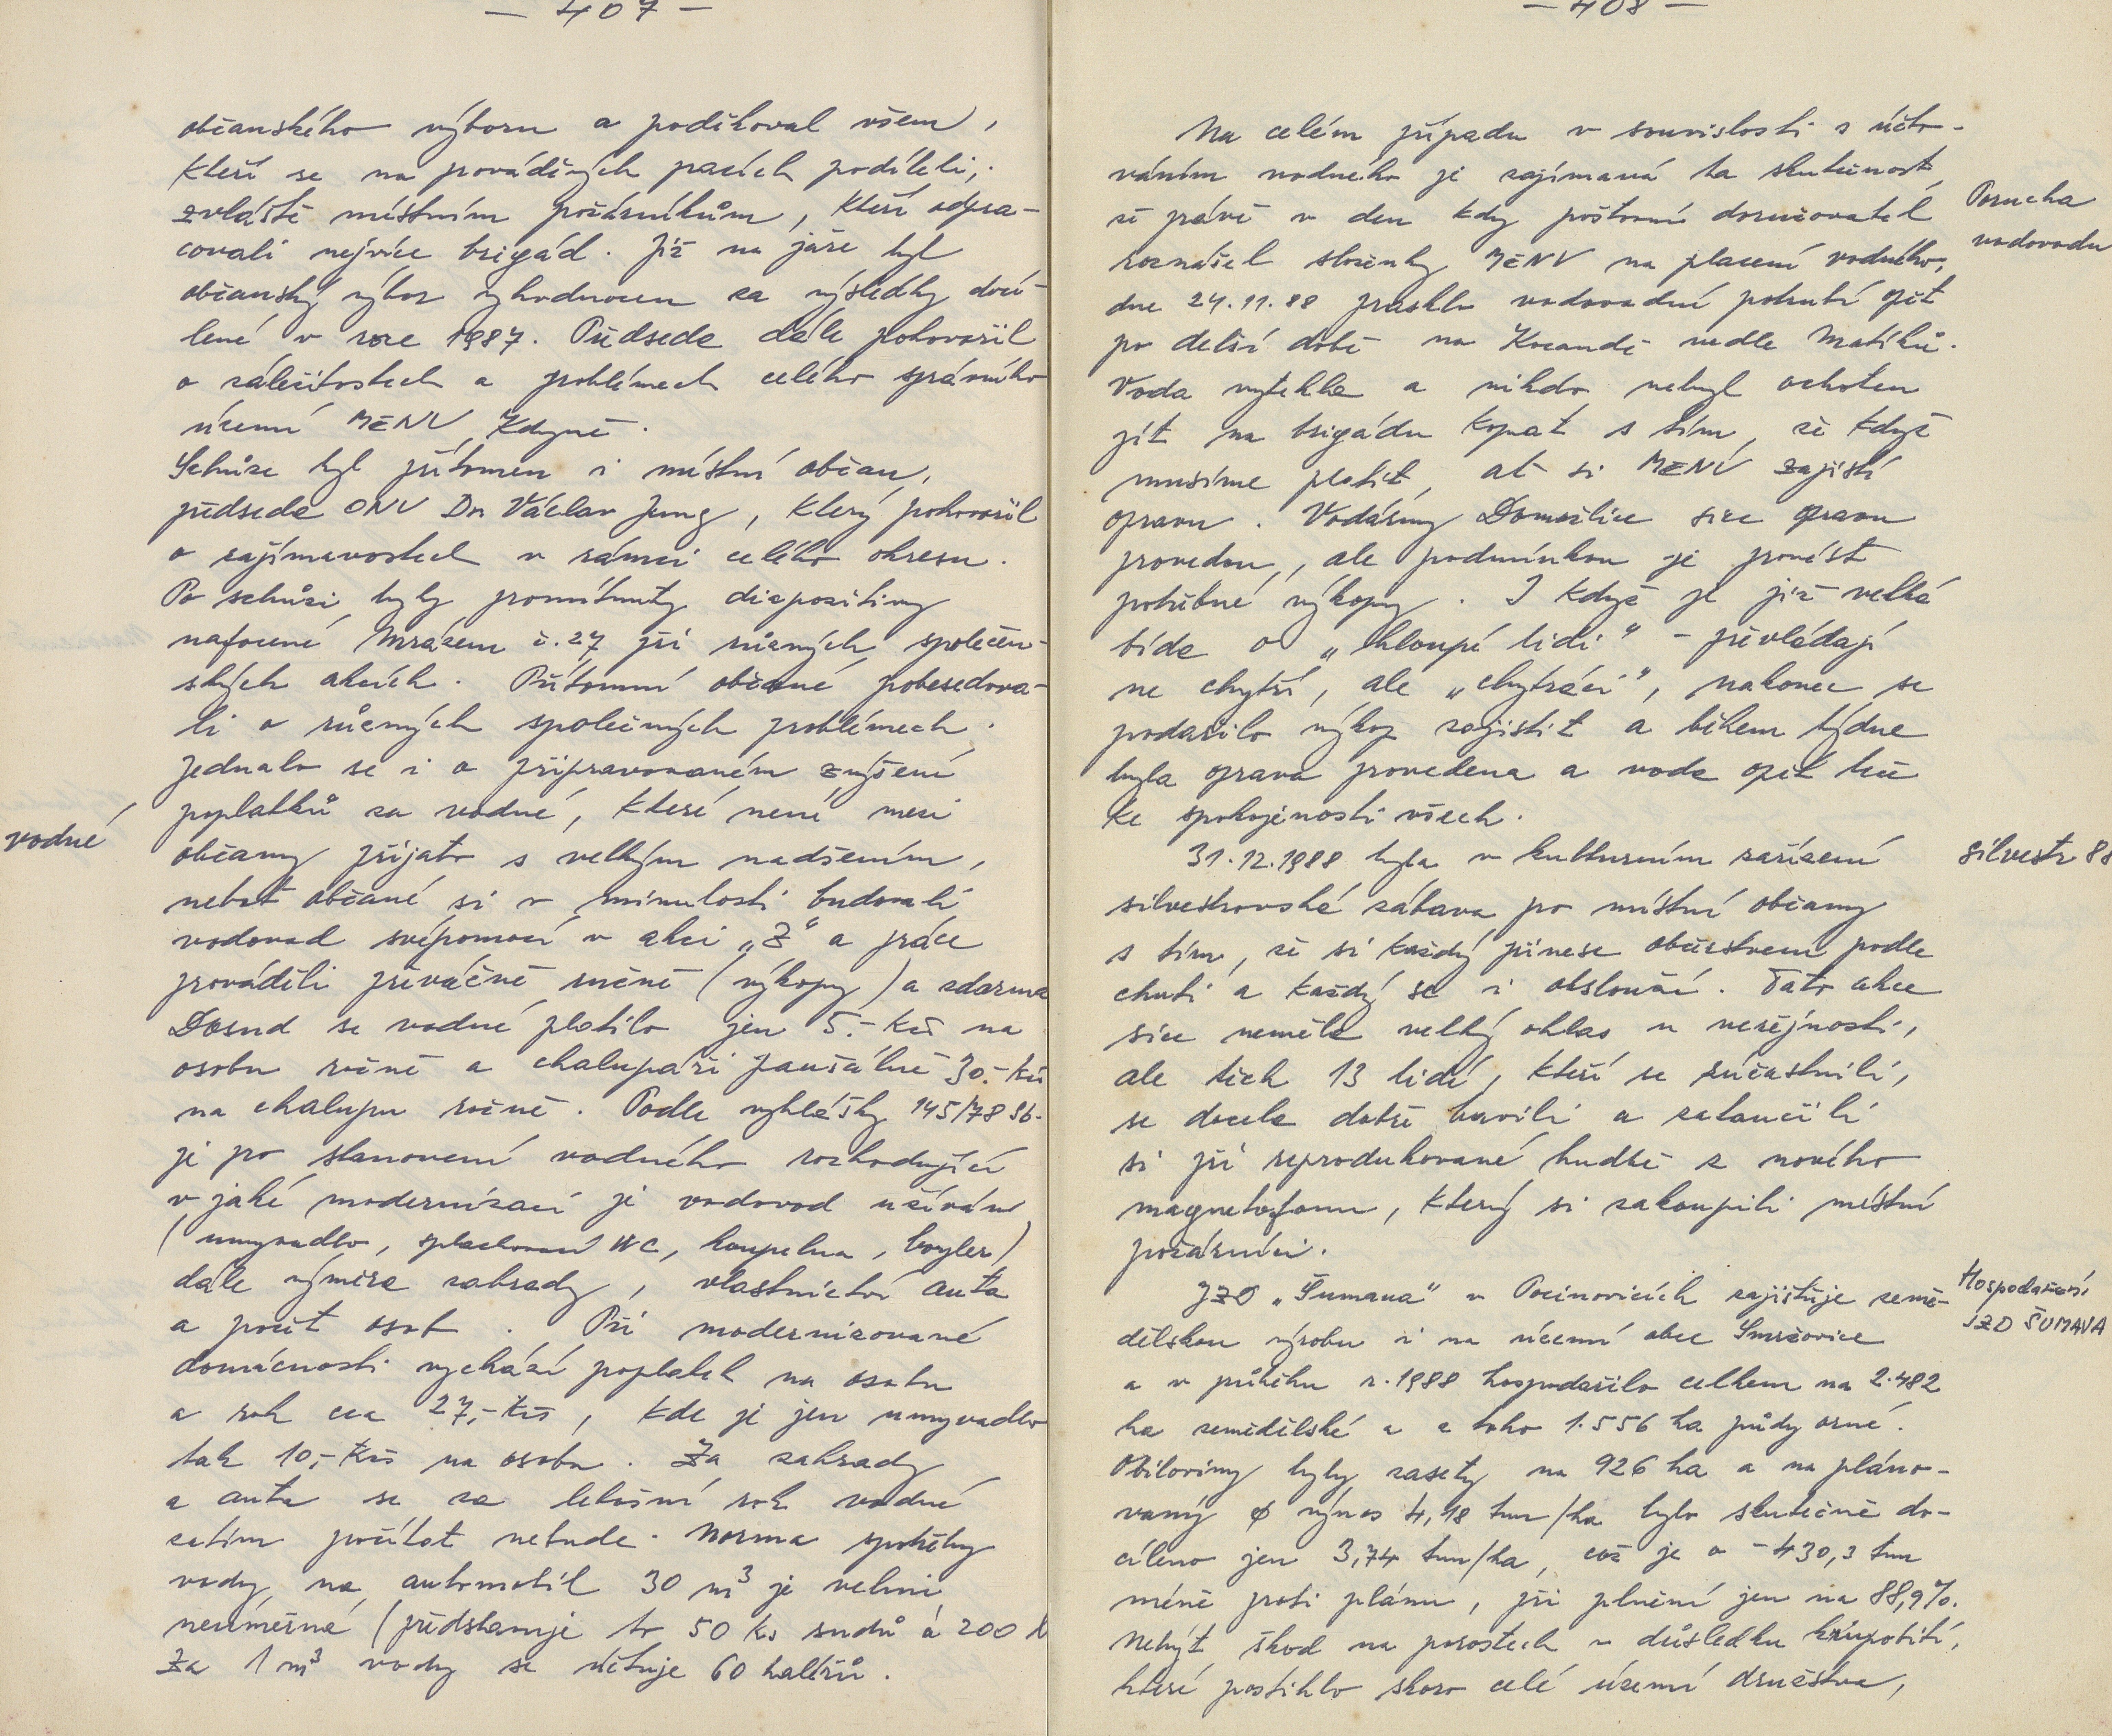 — 407 —
občanského výboru a poděkoval všem,
kteří se na prováděných pracích podíleli,
zvláště místním požárníkům, kteří odpra-
covali nejvíce brigád. Již na jaře byl
občanský výbor vyhodnocen za výsledky docí-
lené v roce 1987. Předseda dále pohovořil
o záležitostech a problémech celého správního
území MěNV Kdyně.
Schůze byl přítomen i místní občan,
předseda ONV Dr. Václav Jung, který pohovořil
o zajímavostech v rámci celého okresu.
Po schůzi byly promítnuty diapozitivy
nafocené Mrázem č. 27 při různých společen-
ských akcích. Přítomní občané pobesedova-
li o různých společných problémech.
Jednalo se i o připravovaném zvýšení
poplatků za vodné, které není mezi
vodné
občany přijato s velkým nadšením,
neboť občané si v minulosti budovali
vodovod svépomocí v akci „Z“ a práce
prováděli převážně ručně (výkopy) a zdarma
Dosud se vodné platilo jen 5.- Kčs na
osobu ročně a chalupáři paušálně 30.- Kčs
na chalupu ročně. Podle vyhlášky 145/78 Sb.
je po stanovení vodného rozhodující
v jaké modernizaci je vodovod užíván
(umyvadlo, splachovací WC, koupelna, boyler)
dále výměra zahrady, vlastnictví auta
a počet osob. Při modernizované
domácnosti vychází poplatek na osobu
a rok cca 27,- Kčs, kde je jen umyvadlo
tak 10,- Kčs na osobu. Za zahrady
a auta se za letošní rok vodné
zatím počítat nebude. Norma spotřeby
vody na automobil 30 m³ je velmi
neúměrná (představuje to 50 ks sudů á 200 l
Za 1 m³ vody se účtuje 60 haléřů.
— 408 —
Na celém případu v souvislosti s účto-
váním vodného je zajímavá ta skutečnost,
Porucha
že právě v den kdy poštovní doručovatel
vodovodu
roznášel složenky MěNV na placení vodného,
dne 24.11.88 prasklo vodovodní potrubí opět
po delší době na Kocandě vedle Matějků.
Voda vytekla a nikdo nebyl ochoten
jít na brigádu kopat s tím, že když
musíme platit, ať si MěNV zajistí
opravu. Vodárny Domažlice sice opravu
provedou, ale podmínkou je provést
potřebné výkopy. I když je již velká
bída o „hloupé lidi“ - převládají
ne chytří, ale „chytráci“, nakonec se
podařilo výkop zajistit a během týdne
byla oprava provedena a voda opět teče
ke spokojenosti všech.
31.12.1988 byla v kulturním zařízení
Silvestr 88
silvestrovská zábava po místní občany
s tím, že si každý přinese občerstvení podle
chuti a každý se i obslouží. Tato akce
sice neměla velký ohlas u veřejnosti,
ale těch 13 lidí, kteří se zúčastnili,
se docela dobře bavili a zatančili
si při reprodukované hudbě z nového
magnetofonu, který si zakoupili místní
požárníci.
JZD „Šumava“ v Pocinovicích zajišťuje země-
Hospodaření
JZD ŠUMAVA
dělskou výrobu i na území obce Smržovice
a v průběhu r. 1988 hospodařilo celkem na 2.482
ha zemědělské a z toho 1.556 ha půdy orné.
Obiloviny byly zasety na 926 ha a na pláno-
vaný ø výnos 4,18 tun/ha bylo skutečně do-
cíleno jen 3,74 tun/ha, což je o -430,3 tun
méně proti plánu, při plnění jen na 88,9%.
Nebýt škod na porostech v důsledku krupobití,
které postihlo skoro celé území družstva,